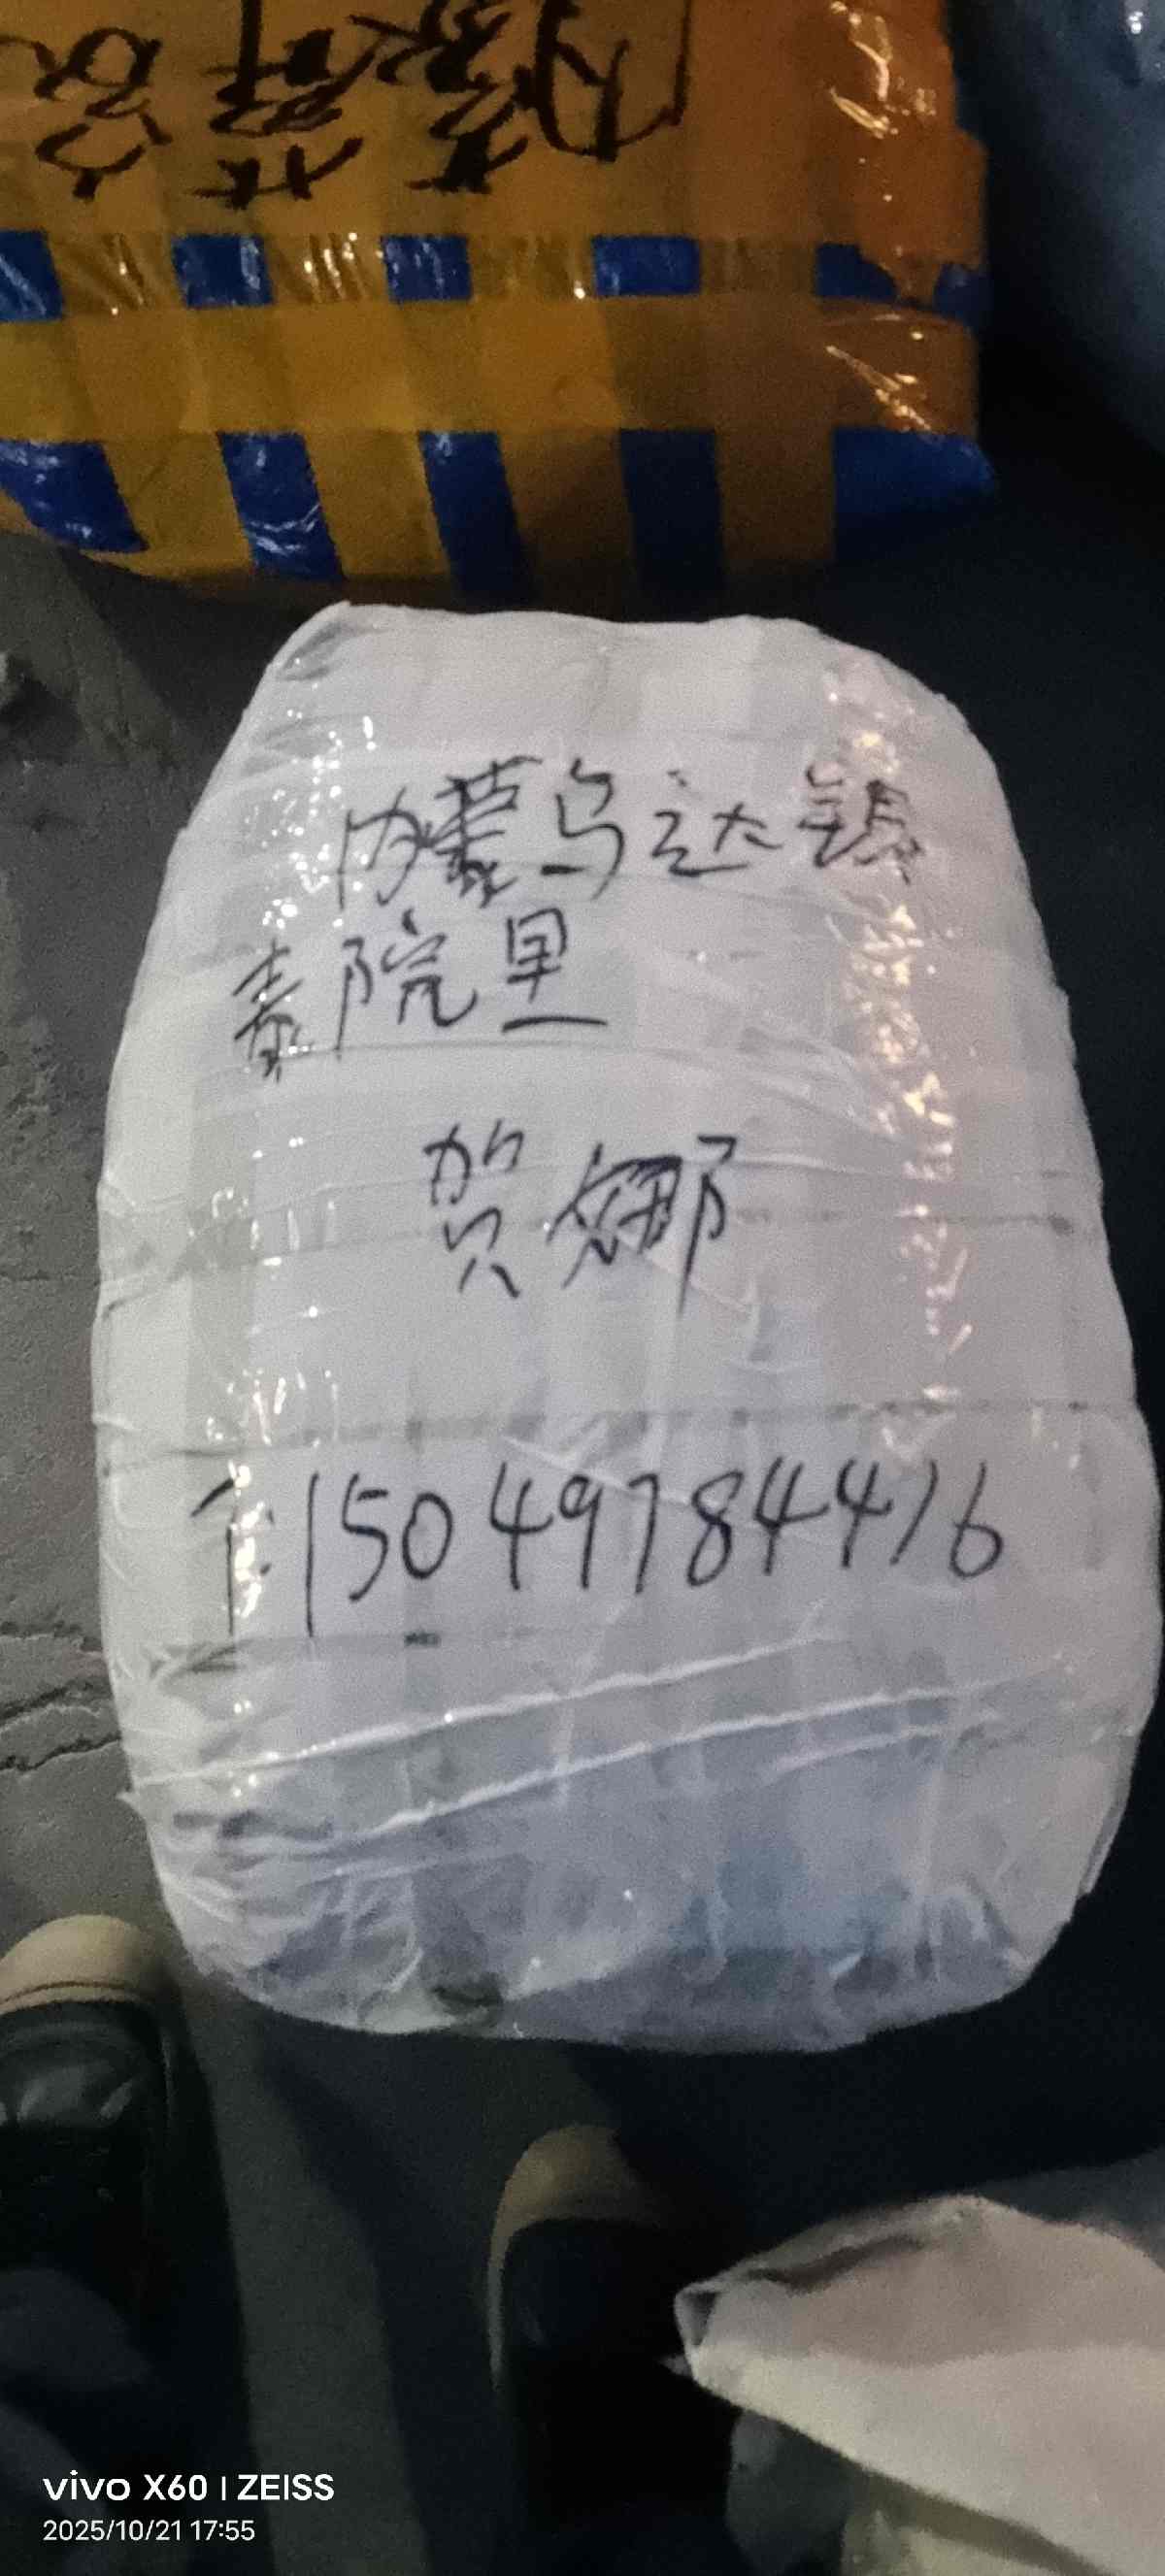 内蒙乌达镇
素院里
贺娜
个:15049784476
vivo X60 | ZEISS
2025/10/21 17:55